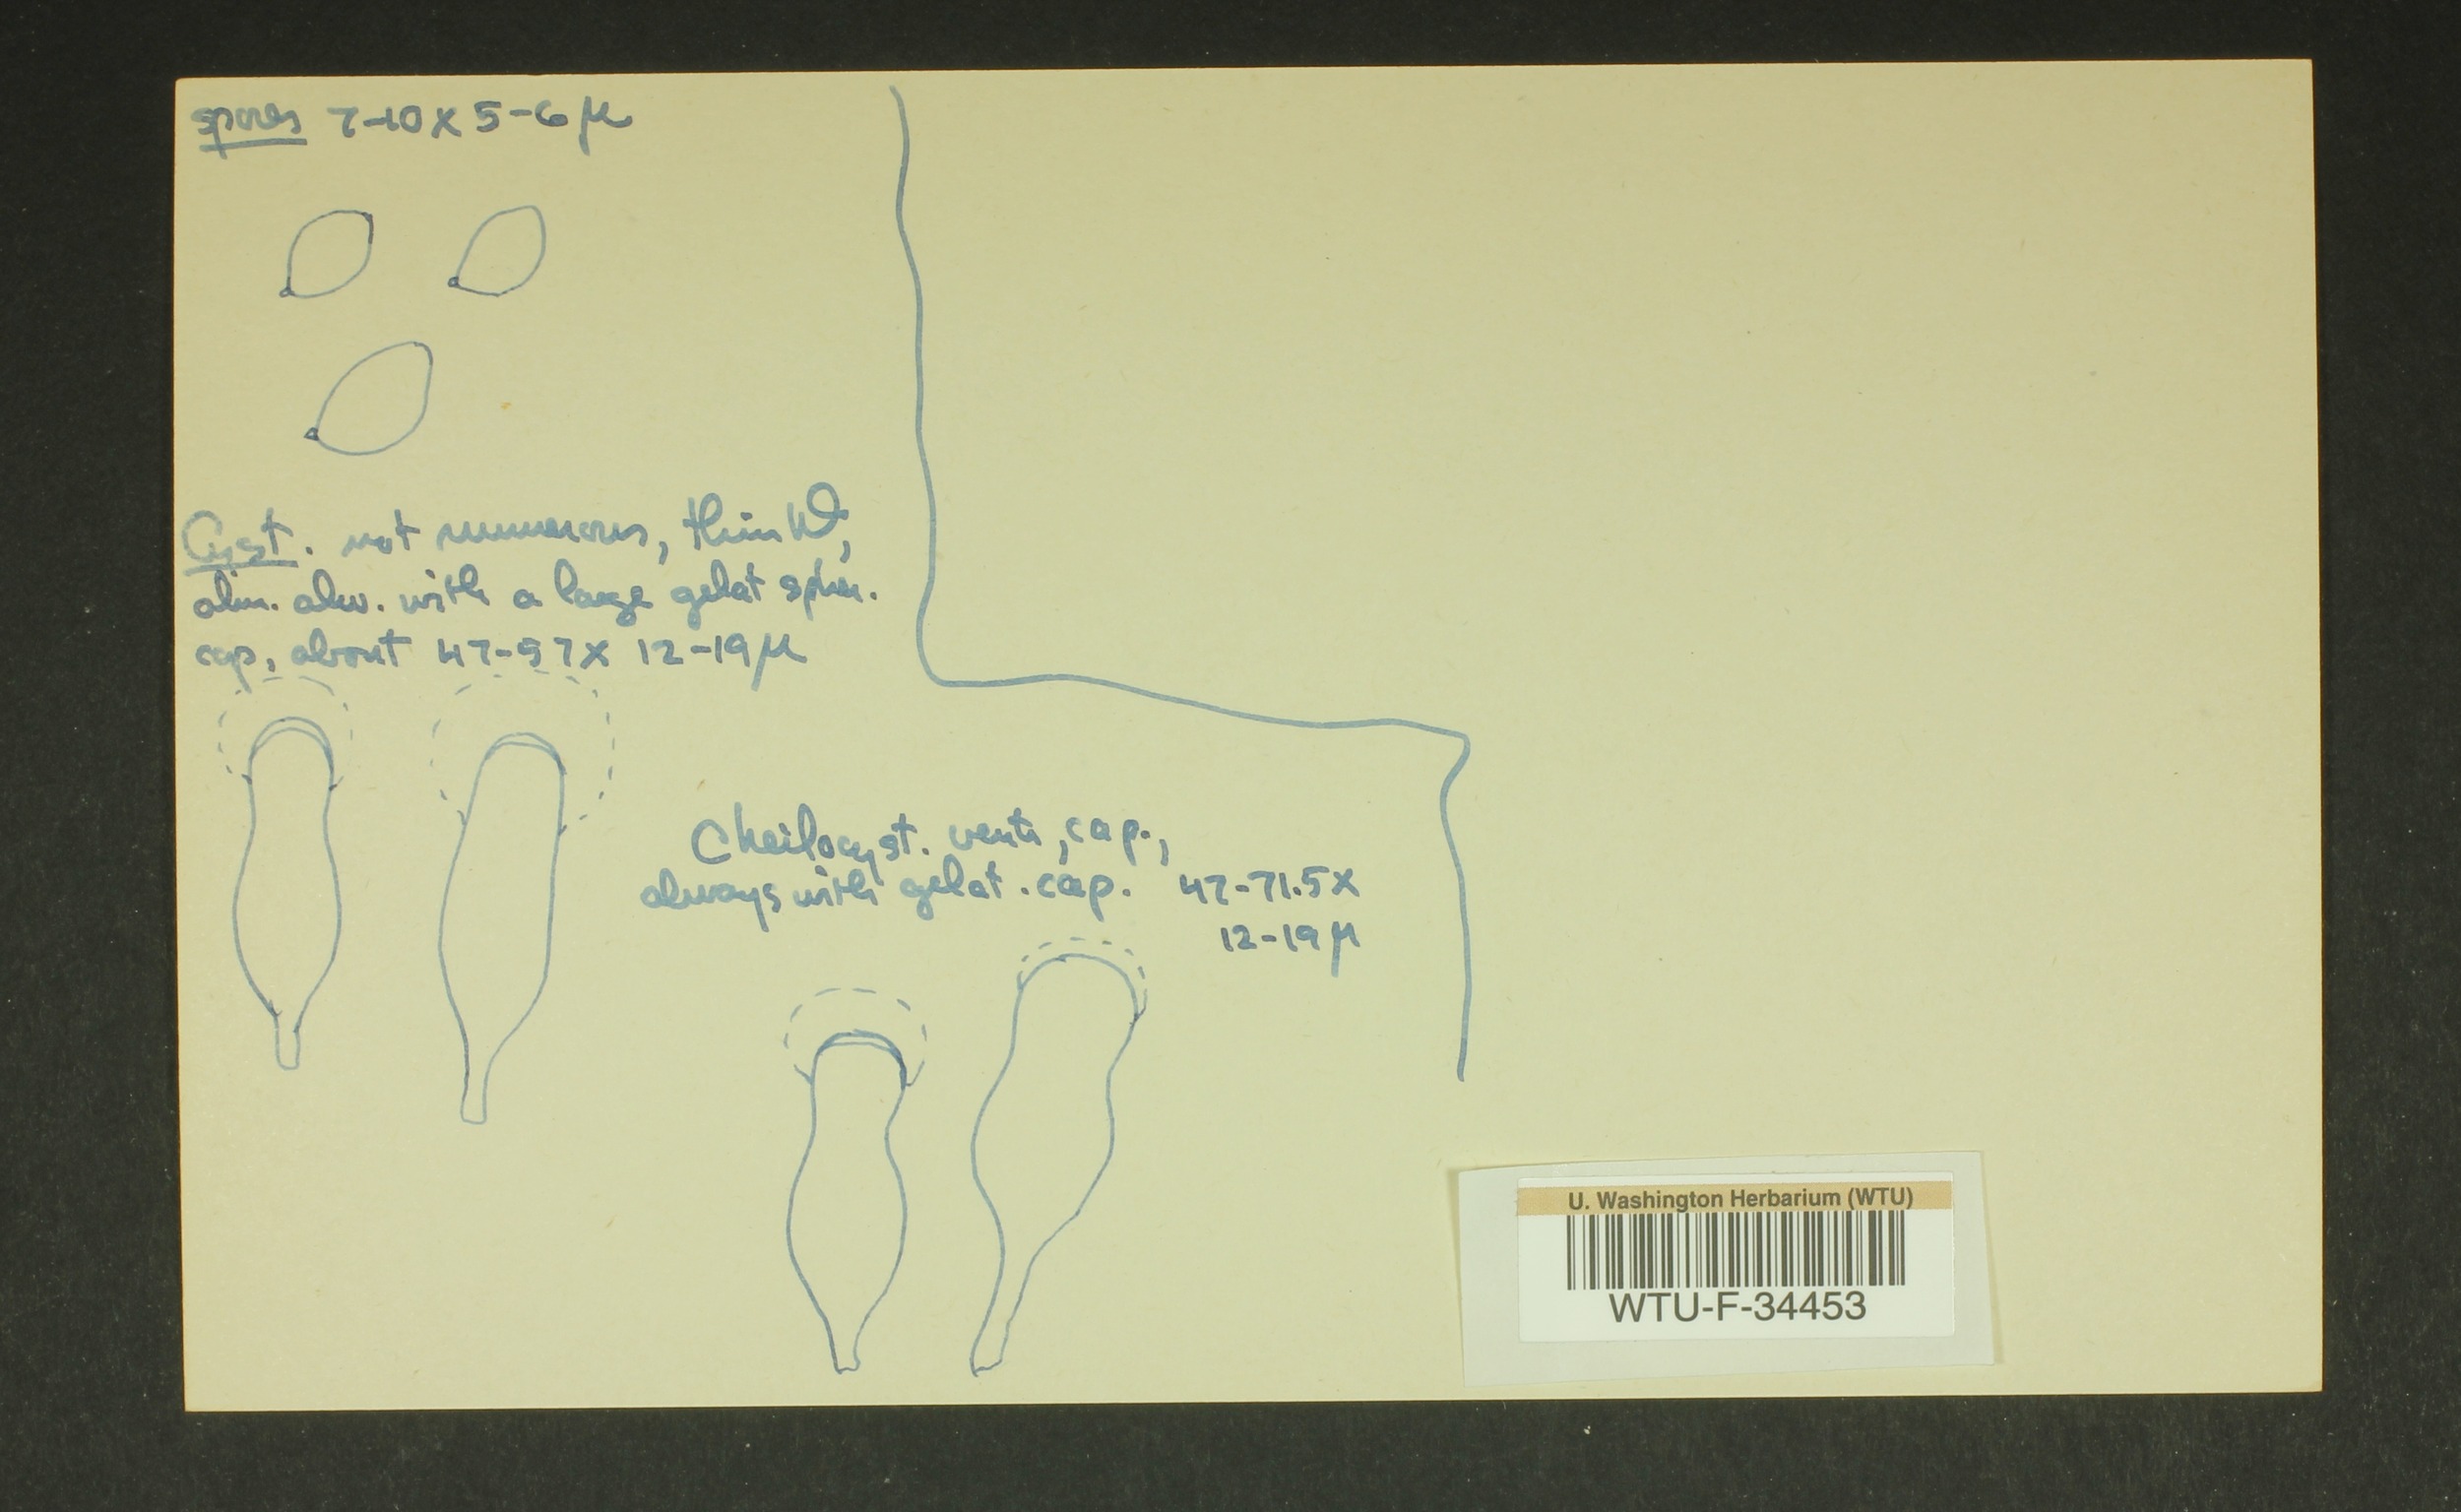 spores 7-10 x 5-6 µ
Cyst. not numerous, thin W,
alm. alw. with a large gelat spher.
cap, about 47-57 x 12-19 µ
Cheilocyst. ventr, cap.,
always with gelat. cap. 47-71.5 x
12-19 µ
U. Washington Herbarium (WTU)
WTU-F-34453